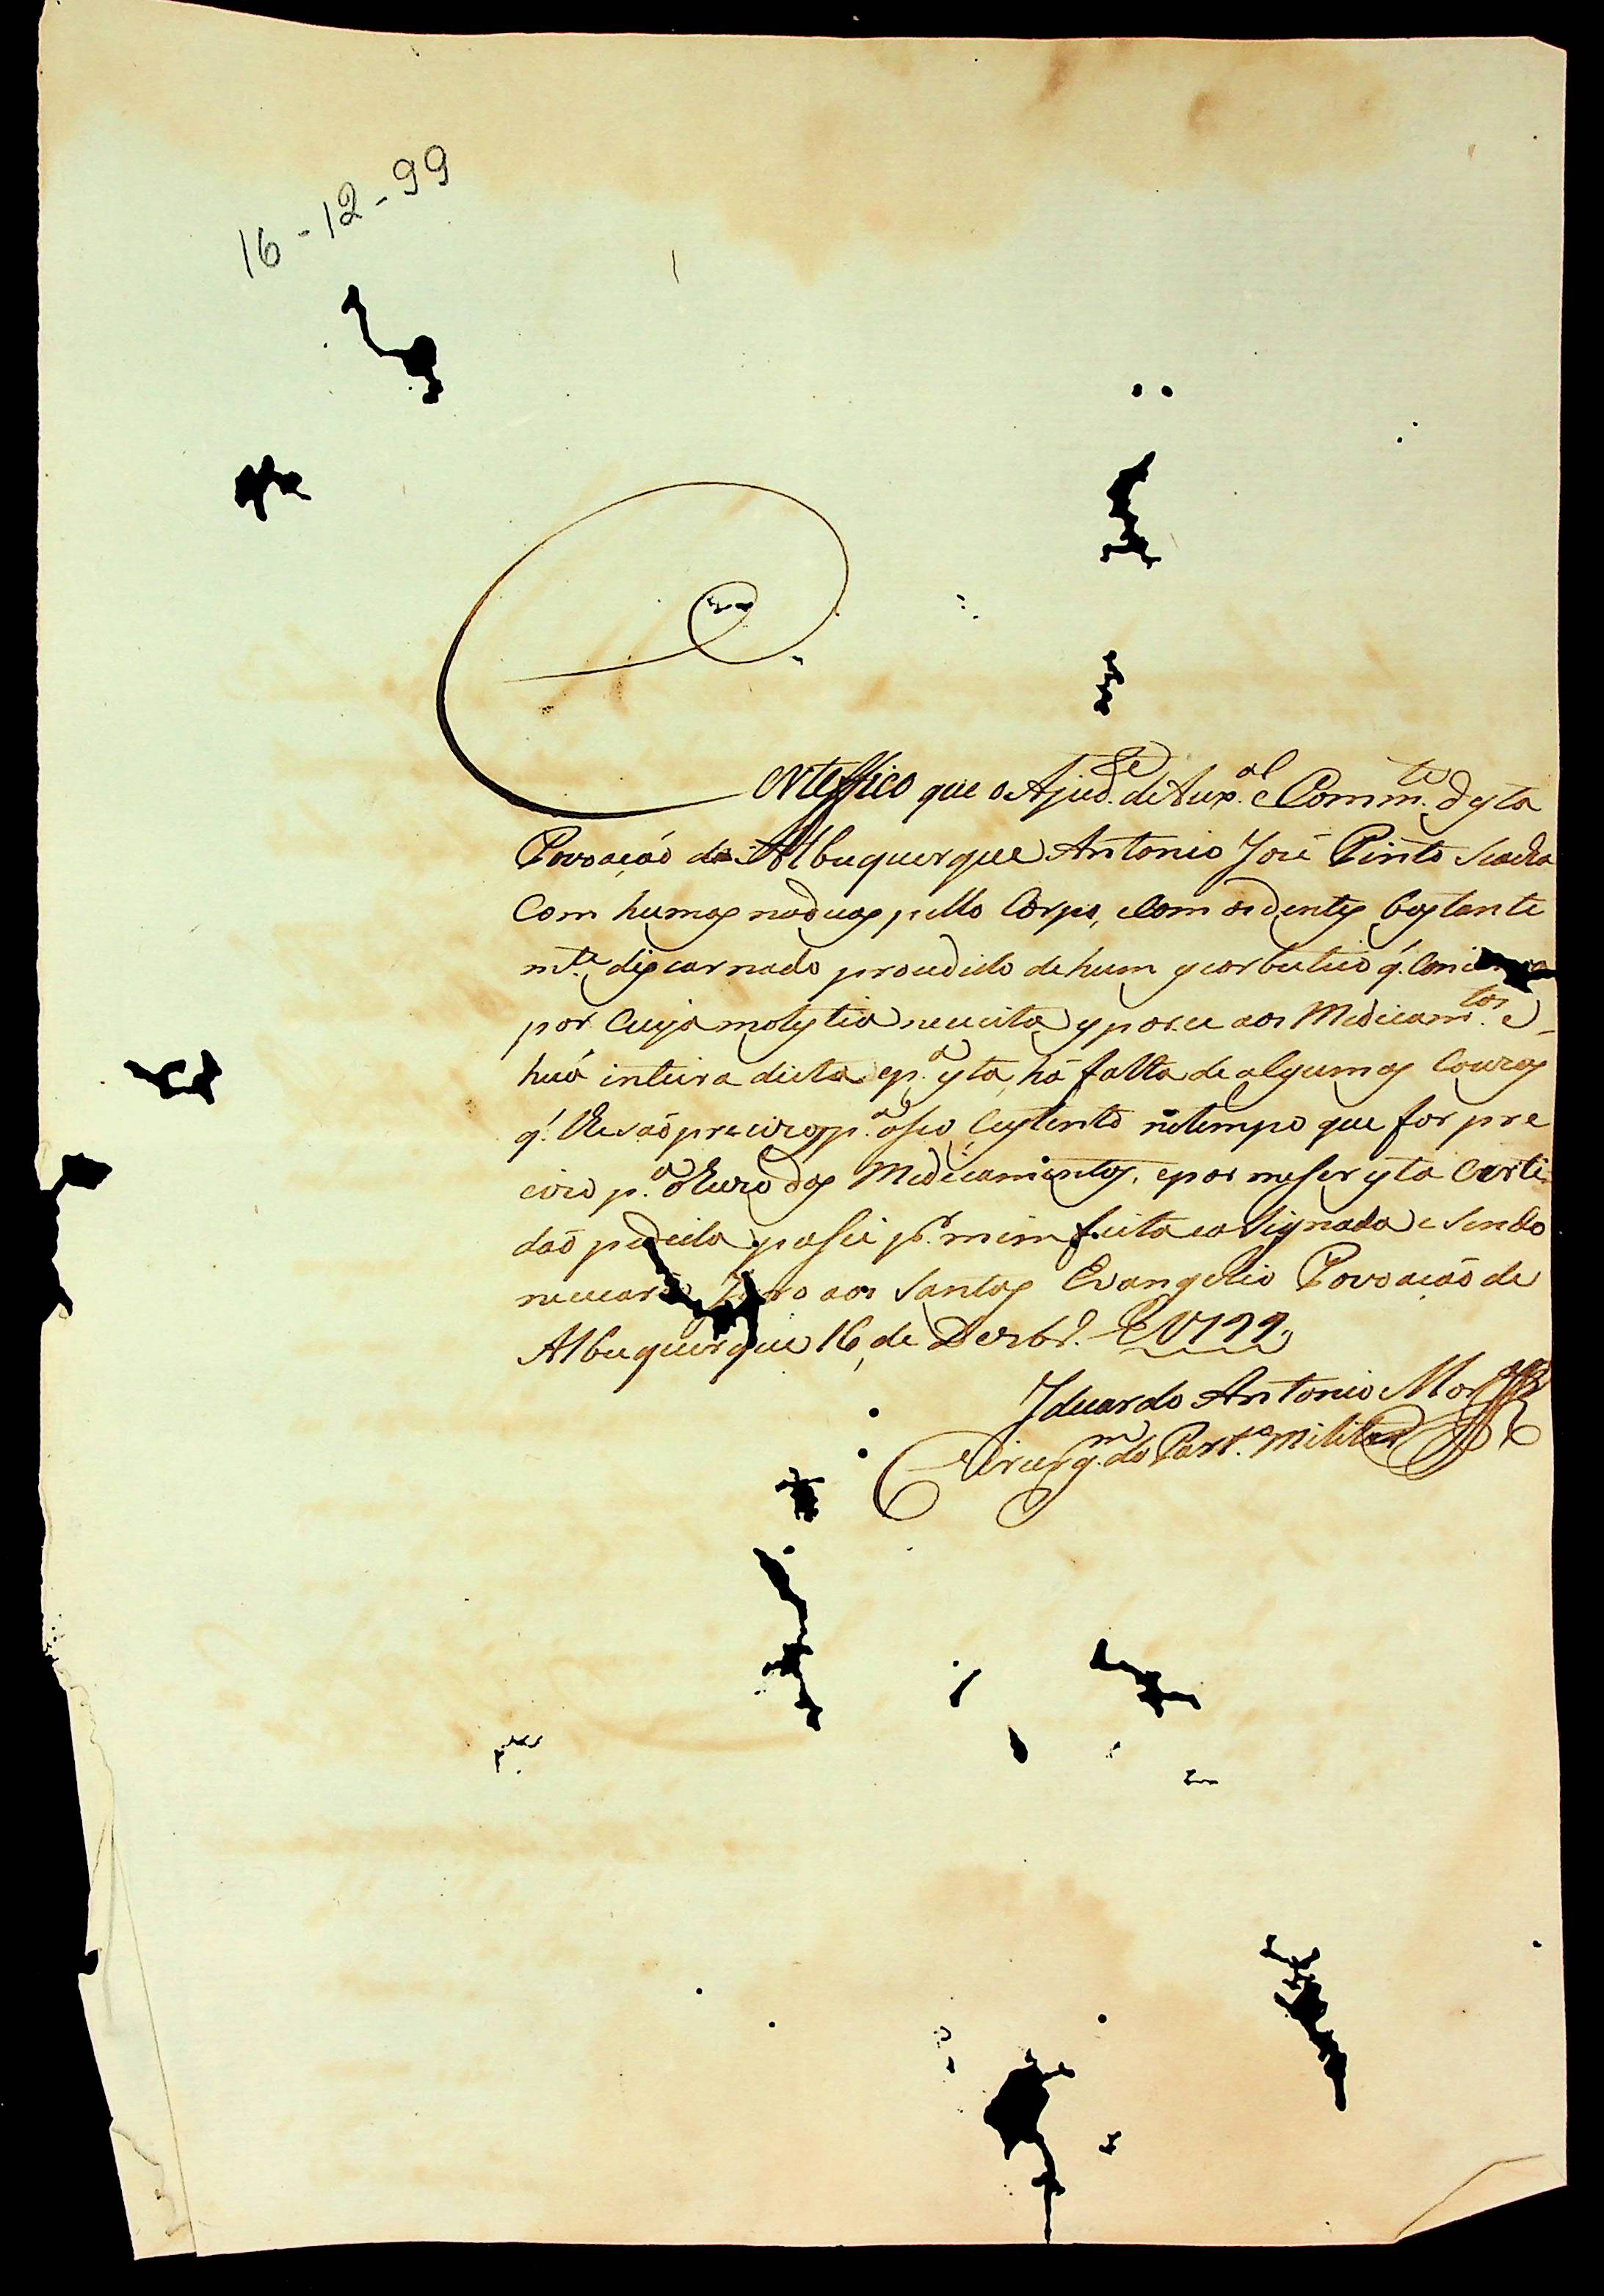 16-12-99
Certeffico que o Ajud.te de Aux.al e Comm.te desta
Povoaçaõ de Albuquerque Antonio José Pinto Seacha
Com humas noduas pello Corpo, e Com os dentes bastante
m.te discarnado proscedido de hum escorbutico q.
por Cuja molestia necicita esporce aos Medicam.tos e
huã inteira dieta e p.a esta, há falta de algumas Couzas
q. lhe saõ precizos p.a o seo Custento no tempo que for pre
cizo p.a o huzo dos Medicamentos, e por me ser esta Certi
daõ pedida pasei p.r mim feita e asignada e sendo
nececario Juro aos Santos Evangelio Povoaçaõ de
Albuquerque 16 de Dezbr.o de 1799
Eduardo Antonio
Cirurg.m do Part.o Militar